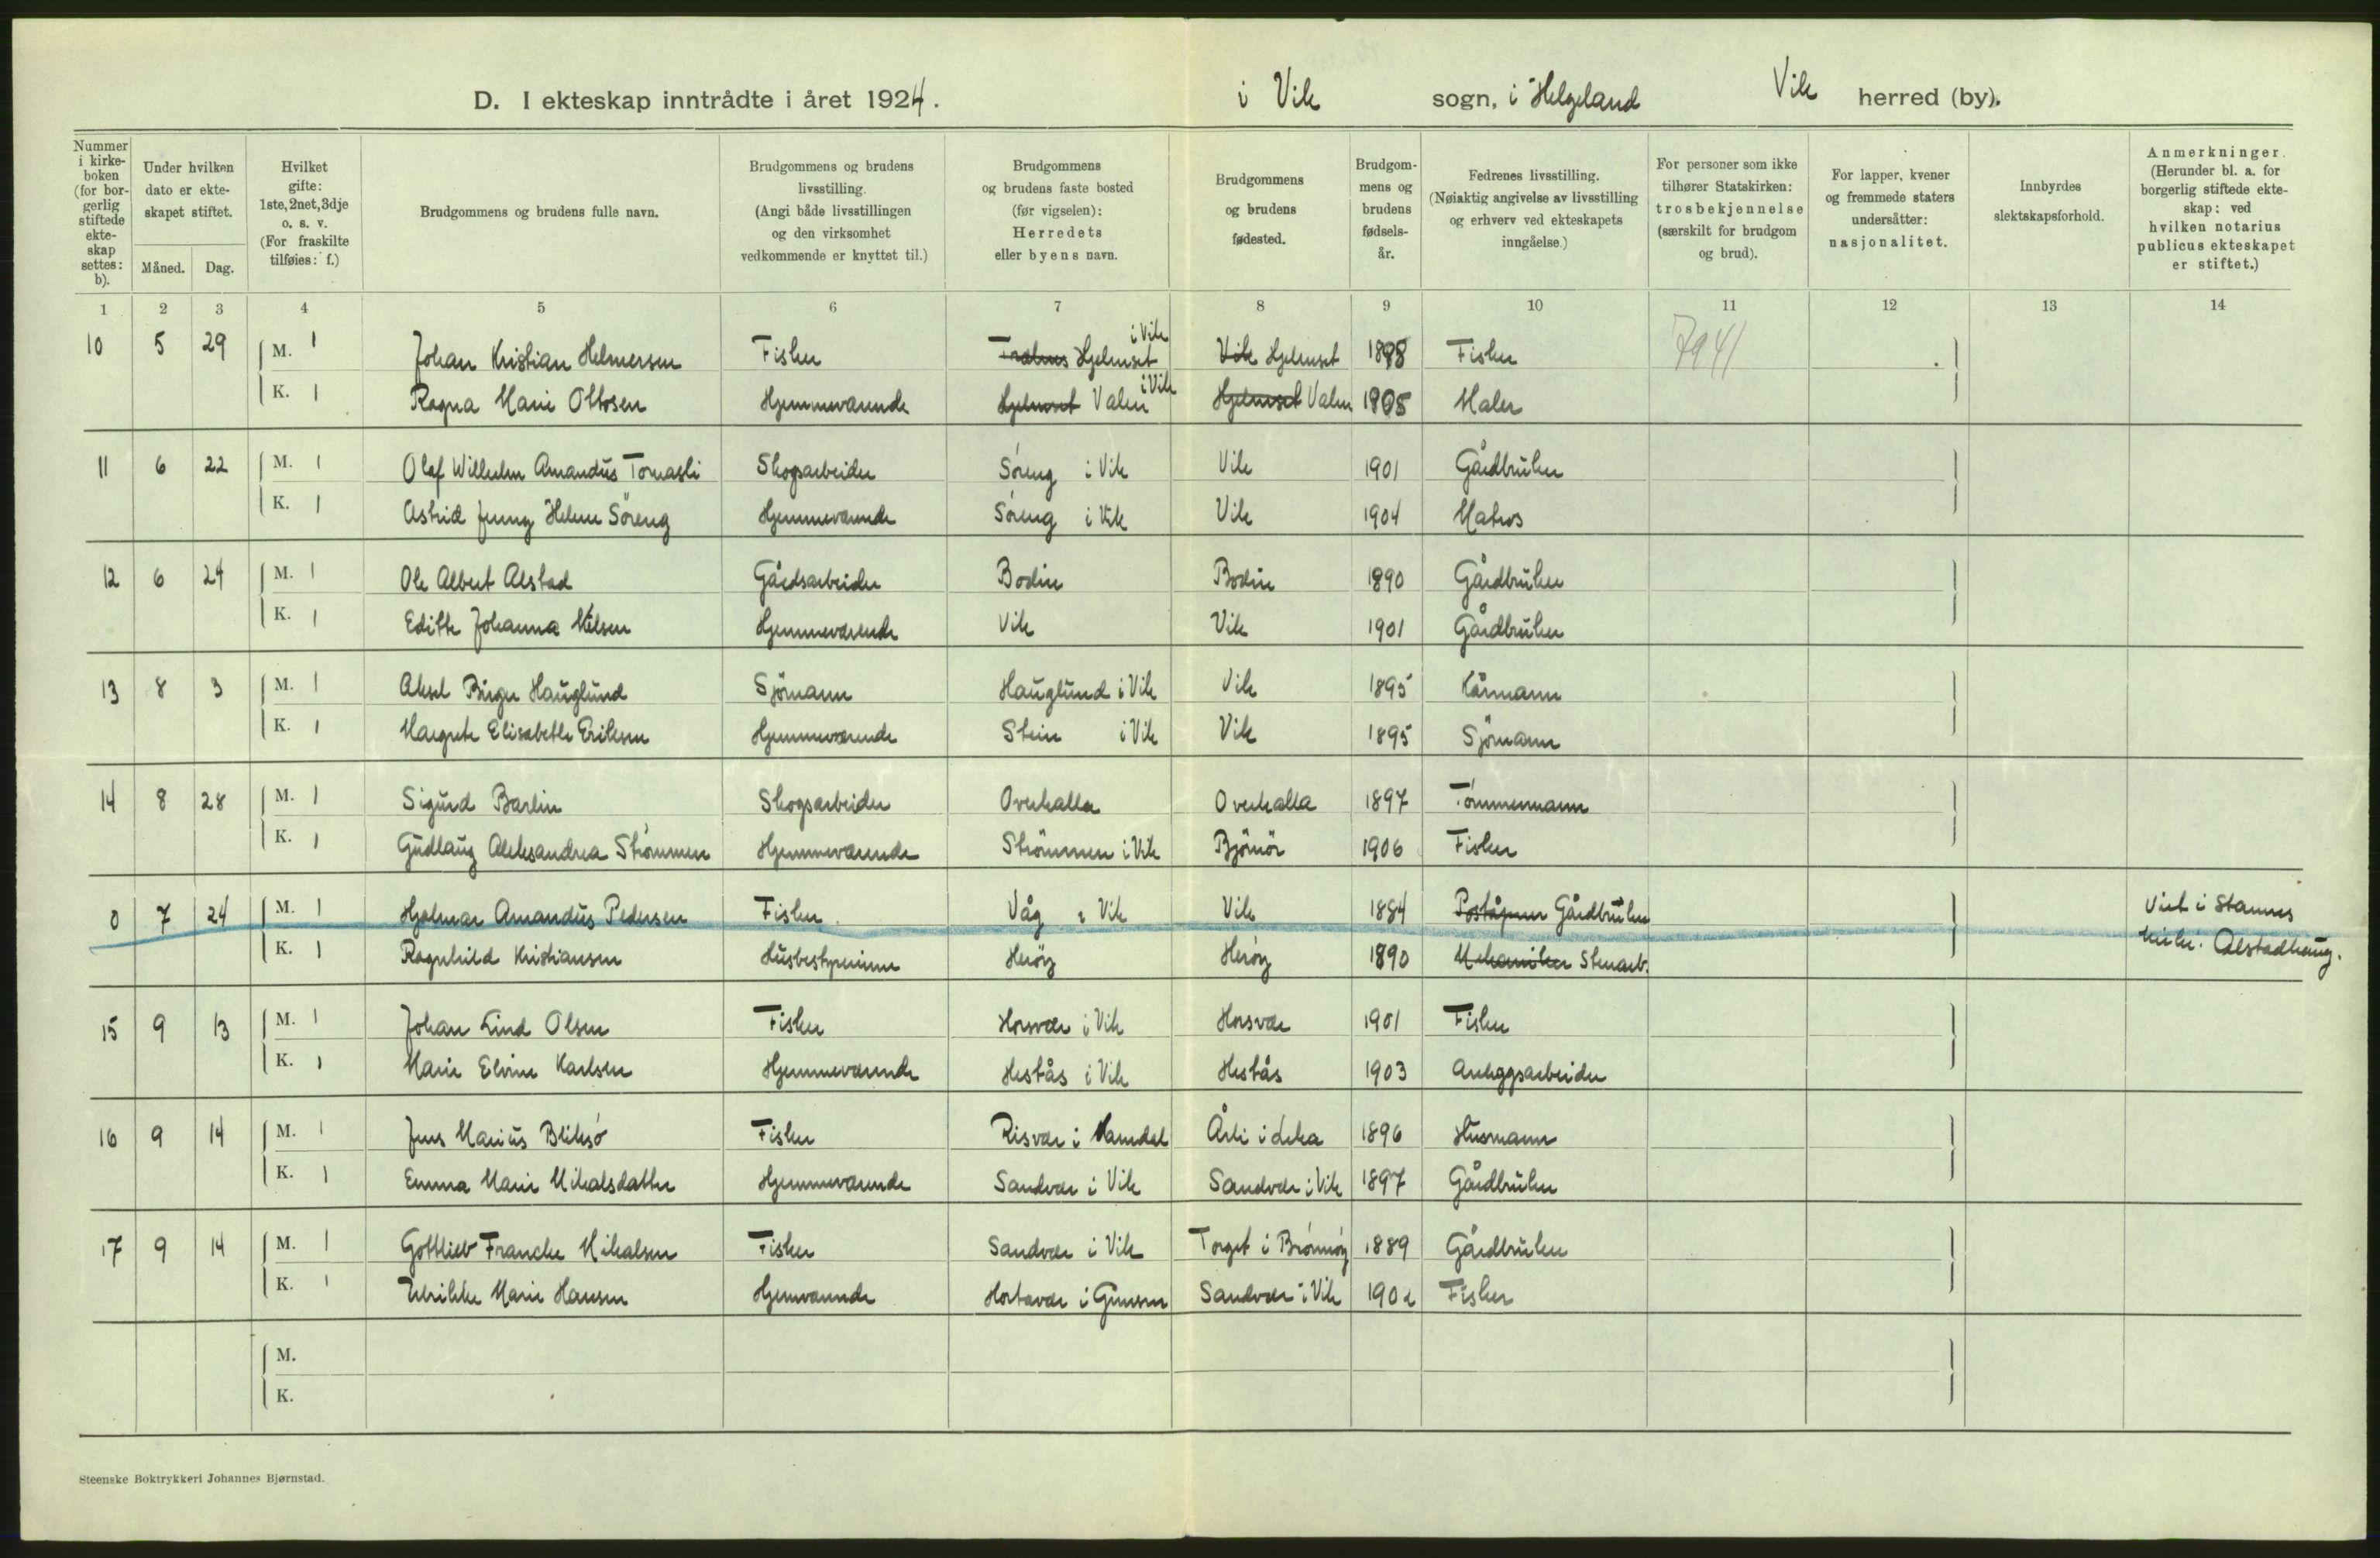 D. I ekteskap inntrådte i året 1924. i Vik sogn, i Helgeland Vik herred (by).
Nummer i kirkeboken (for borgerlig stiftede ekteskap settes: b).
Under hvilken dato er ekteskapet stiftet.
Måned. Dag.
Hvilket gifte: 1ste, 2net, 3dje o. s. v. (For fraskilte tilføies: f.)
Brudgommens og brudens fulle navn.
Brudgommens og brudens livsstilling. (Angi både livsstillingen og den virksomhet vedkommende er knyttet til.)
Brudgommens og brudens faste bosted (før vigselen): Herredets eller byens navn.
Brudgommens og brudens fødested.
Brudgommens og brudens fødselsår.
Fedrenes livsstilling. (Nøiaktig angivelse av livsstilling og erhverv ved ekteskapets inngåelse.)
For personer som ikke tilhører Statskirken: trosbekjennelse (særskilt for brudgom og brud).
For lapper, kvener og fremmede staters undersåtter: nasjonalitet.
Innbyrdes slektskapsforhold.
Anmerkninger. (Herunder bl. a. for borgerlig stiftede ekteskap: ved hvilken notarius publicus ekteskapet er stiftet.)
1 2 3 4 5 6 7 8 9 10 11 12 13 14
10 5 29 M. 1 Johan Kristian Helmersen Fisker Hjelmset i Vik Vik Hjelmset 1898 Fisker 7941
K. 1 Ragna Marie Ottosen Hjemmeværende Hjelmset Valen i Vik Hjelmset Valen 1905 Maler
11 6 22 M. 1 Olaf Wilhelm Amandus Tomasli Skogsarbeider Søreng i Vik Vik 1901 Gårdbruker
K. 1 Astrid Jenny Helene Søreng Hjemmeværende Søreng i Vik Vik 1904 Matros
12 6 24 M. 1 Ole Albert Alstad Gårdsarbeider Bodin Bodin 1890 Gårdbruker
K. 1 Edith Johanna Nilsen Hjemmeværende Vik Vik 1901 Gårdbruker
13 8 3 M. 1 Aksel Birger Hauglund Sjømann Hauglund i Vik Vik 1895 Kårmann
K. 1 Margrete Elisabeth Eriksen Hjemmeværende Stein i Vik Vik 1895 Sjømann
14 8 28 M. 1 Sigurd Barlin Skogsarbeider Overhalla Overhalla 1897 Tømmermann
K. 1 Gudlaug Aleksandra Strømmen Hjemmeværende Strømmen i Vik Bjørnør 1906 Fisker
0 7 24 M. 1 Hjalmar Amandus Pedersen Fisker Våg i Vik Vik 1884 Poståpner Gårdbruker Viet i Stamnes
K. 1 Ragnhild Kristiansen Husbestyrerinne Herøy Herøy 1890 Mekaniker Stenarb. kirke. Alstadhaug.
15 9 13 M. 1 Johan Lind Olsen Fisker Horsvær i Vik Horsvær 1901 Fisker
K. 1 Marie Elvine Karlsen Hjemmeværende Hestås i Vik Hestås 1903 Anleggsarbeider
16 9 14 M. 1 Jens Marius Bliksø Fisker Risvær i Namdal Årli i Leka 1896 Husmann
K. 1 Emma Marie Mikalsdatter Hjemmeværende Sandvær i Vik Sandvær i Vik 1897 Gårdbruker
17 9 14 M. 1 Gottlieb Francke Mikalsen Fisker Sandvær i Vik Torget i Brønnøy 1889 Gårdbruker
K. 1 Ulrikke Marie Hansen Hjemværende Hortavær i Sandvær i Vik 1902 Fisker
M.
K.
Steenske Boktrykkeri Johannes Bjørnstad.